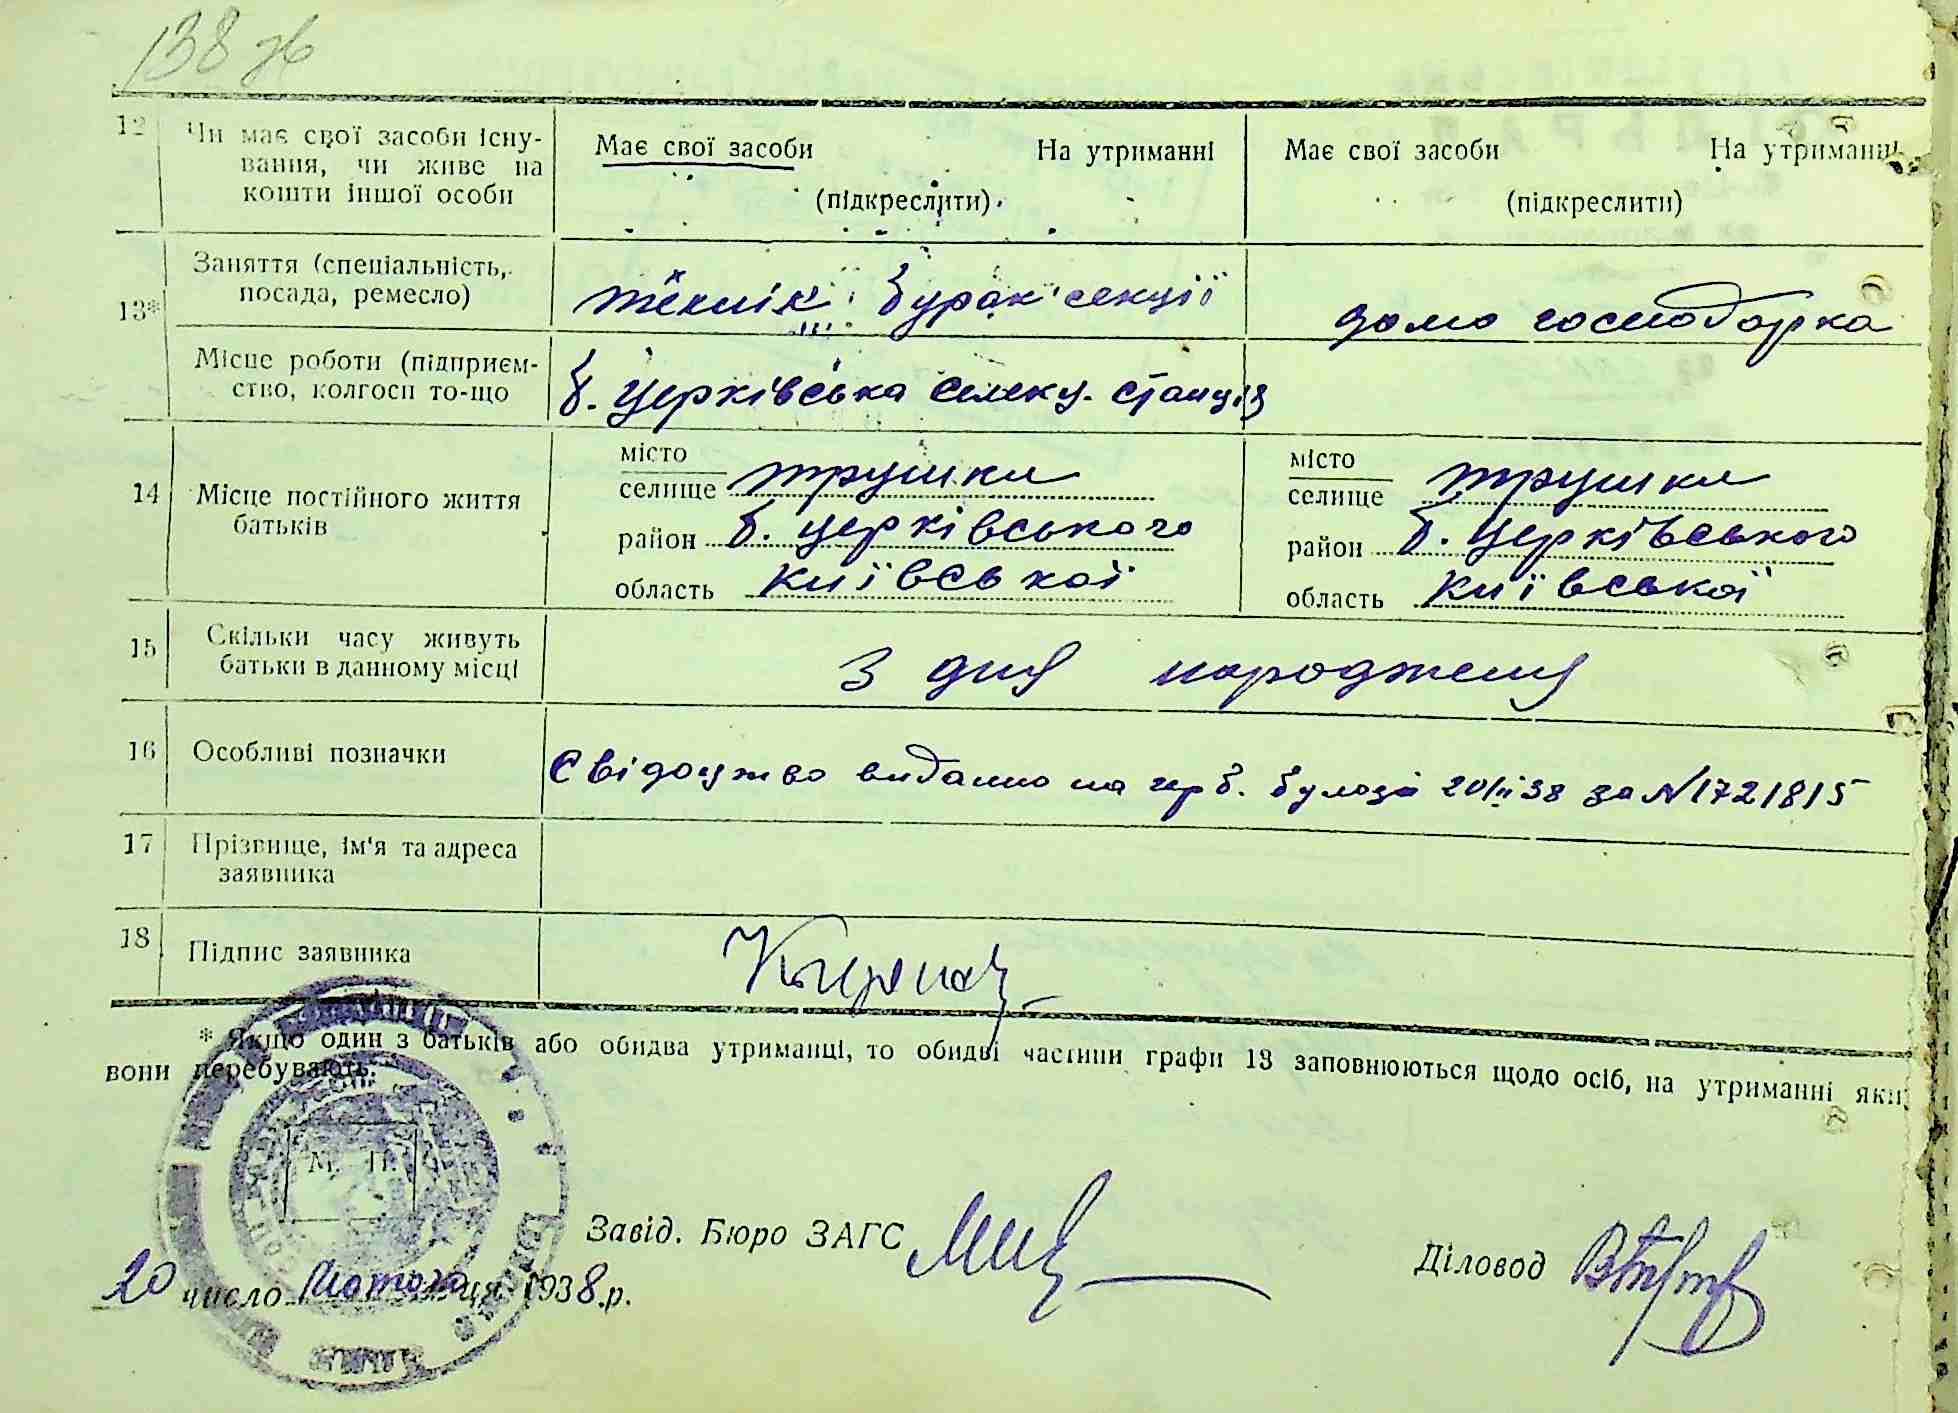 138 зв
12 Чи має свої засоби існу-
вання, чи живе на
кошти іншої особи
Має свої засоби На утриманні
(підкреслити)
Має свої засоби На утриманні
(підкреслити)
13* Заняття (спеціальність,
посада, ремесло)
технік буряк секції
домо господарка
Місце роботи (підприєм-
ство, колгосп то-що
б. церківська селекц. станція
14 Місце постійного життя
батьків
місто
селище трушки
район б. церківського
область київської
місто
селище трушки
район б. церківського
область київської
15 Скільки часу живуть
батьки в данному місці
З дня народженя
16 Особливі позначки
Свідоцтво виданно на герб. бумазі 20/II 38 за №1721815
17 Прізвище, ім'я та адреса
заявника
18 Підпис заявника
* Якщо один з батьків або обидва утриманці, то обидві частини графи 13 заповнюються щодо осіб, на утриманні яки
вони перебувають.
М. П.
Завід. Бюро ЗАГС
Діловод
20 число Лютого ця 1938 р.